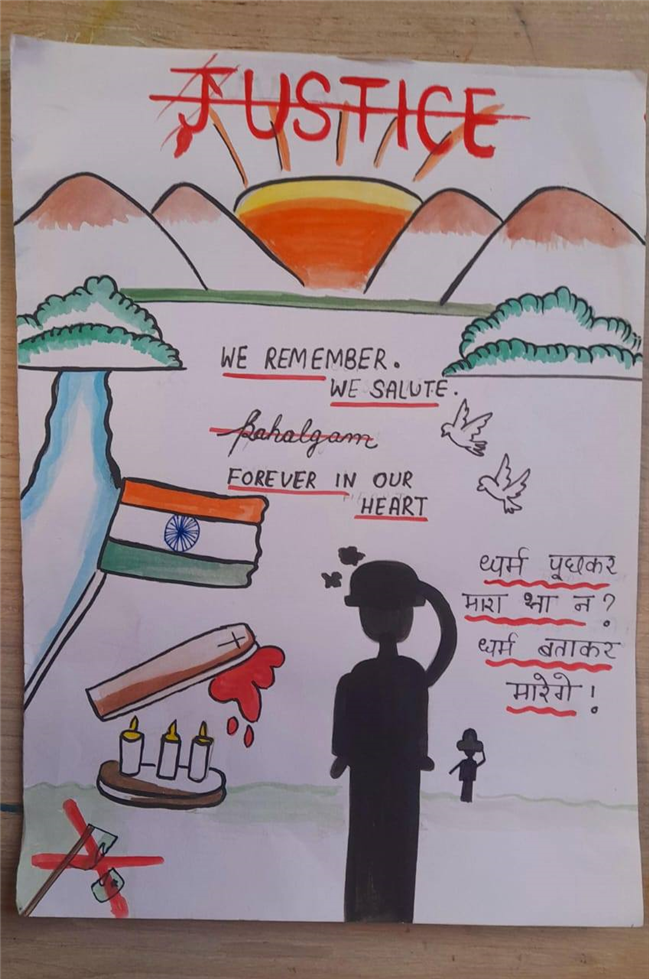 JUSTICE
WE REMEMBER.
WE SALUTE.
Pahalgam
FOREVER IN OUR
HEART
धर्म पूछकर
मारा था न?
धर्म बताकर
मारेगे!